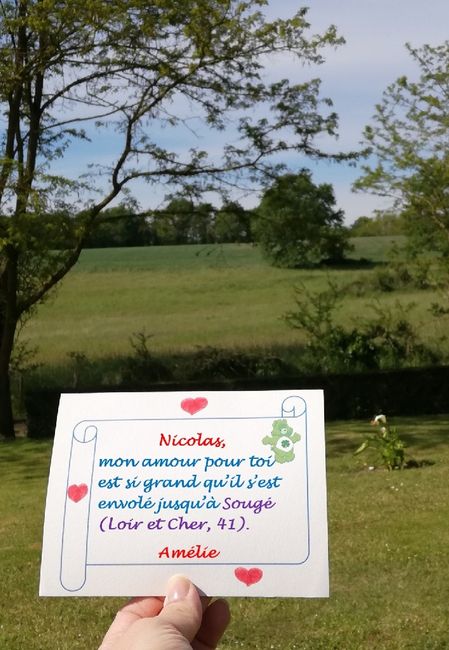 Nicolas,
mon amour pour toi
est si grand qu'il s'est
envolé jusqu'à Sougé
(Loir et Cher, 41).
Amélie